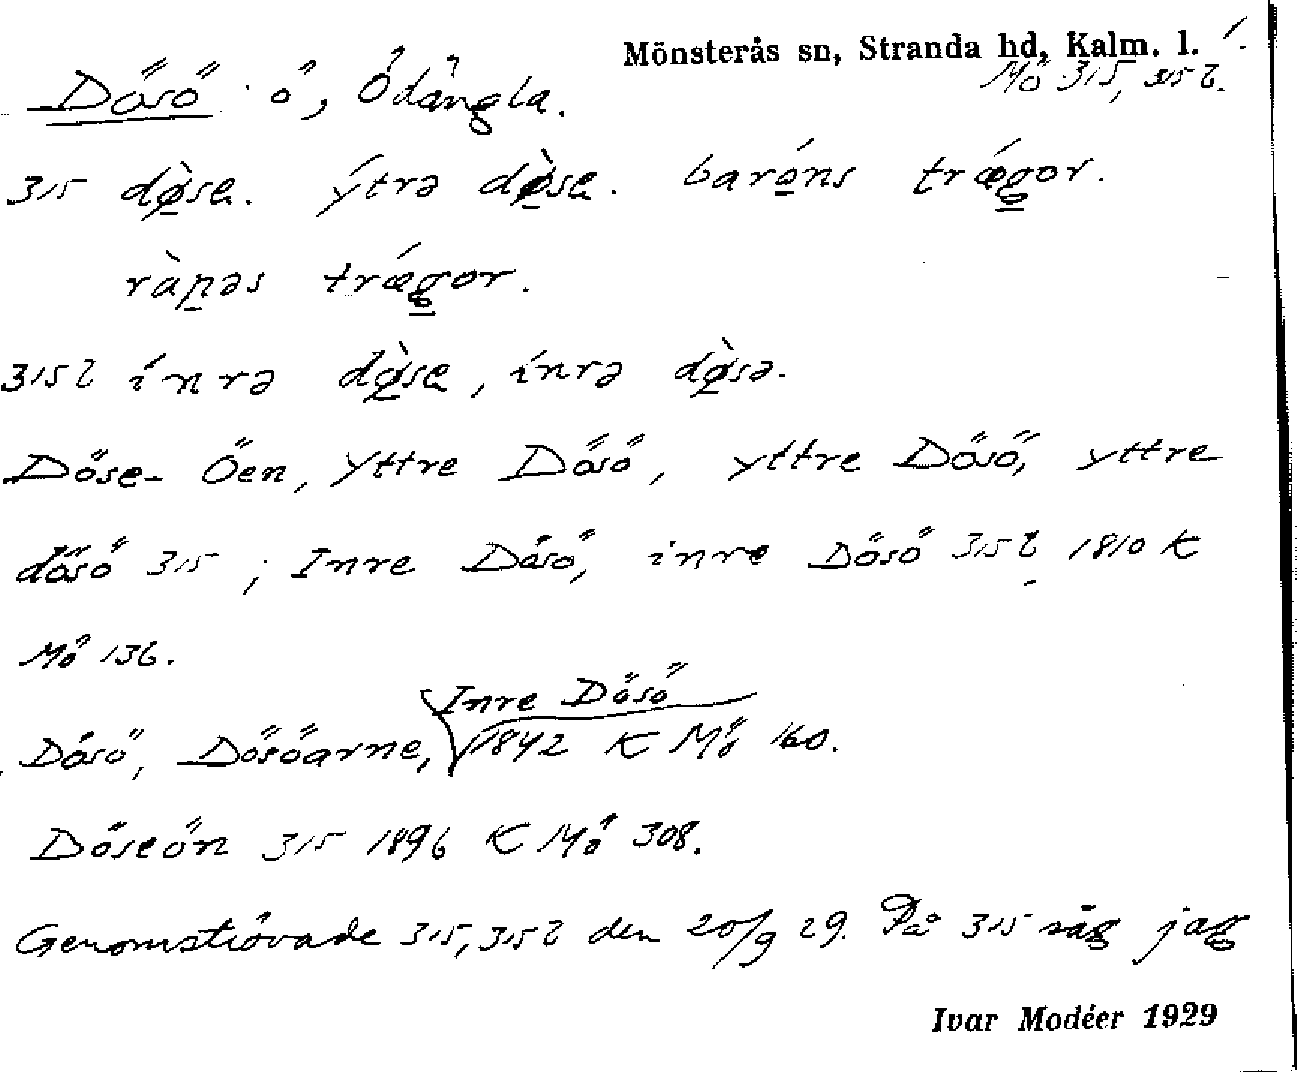 Mönsterås sn, Stranda hd, Kalm. l. 1.
Dösö ö, Ödängla. Mö 315, 315 b.
315 dø̀sɐ. ýtrə dø̀sɐ. baróns trǽgor.
ràpəs trǽgor.
315 b ínrə dø̀sɐ, ínrə dø̀sə.
Döse- Öen, Yttre Dösö, yttre Dösö, yttre
dösö 315; Inre Dösö, inre Dösö 315 b 1810 K
Mö 136.
Inre Dösö
Dösö, Dösöarne, 1842 K Mö 160.
Döseön 315 1896 K Mö 308.
Genomströvade 315, 315 b den 20/9 29. På 315 såg jag
Ivar Modéer 1929